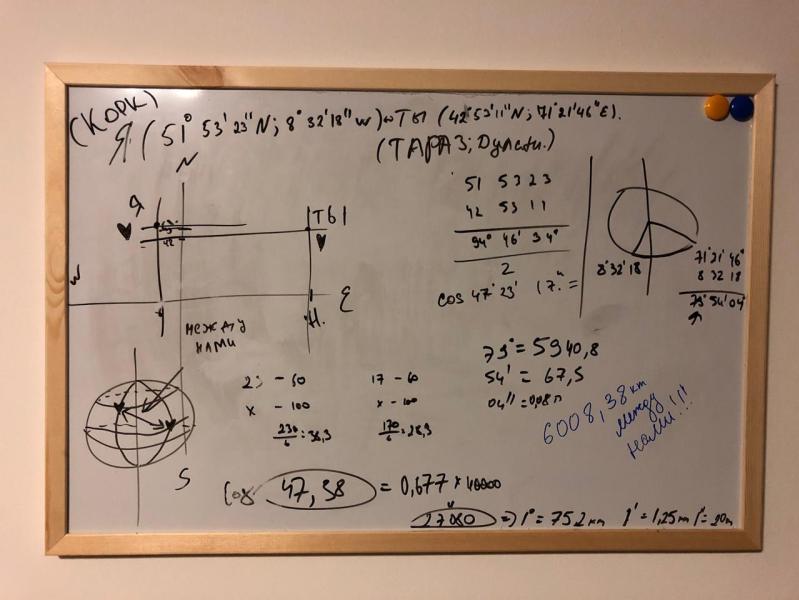 (КОРК)
Я (51° 53' 23" N; 8° 32' 18" W) ТЫ (42° 53' 11" N; 71° 21' 46" E).
(ТАРАЗ; Дулати.)
N
Я
ТЫ
W
E
S
МЕЖДУ
НАМИ
51 53 23
42 53 11
94° 46' 34"
2
cos 47° 23' 17" =
8° 32' 18
71° 21' 46"
8 32 18
79° 54' 04"
79° = 5940,8
54' = 67,5
04" = 0,08
6008,38 km
между
нами!!!
23 - 60
x - 100
230/6 = 38,3
17 - 60
x - 100
170/6 = 28,3
Cos 47,38 = 0,677 × 40000
27080 => 1° = 75.2 km 1' = 1,25 m 1" = 20m